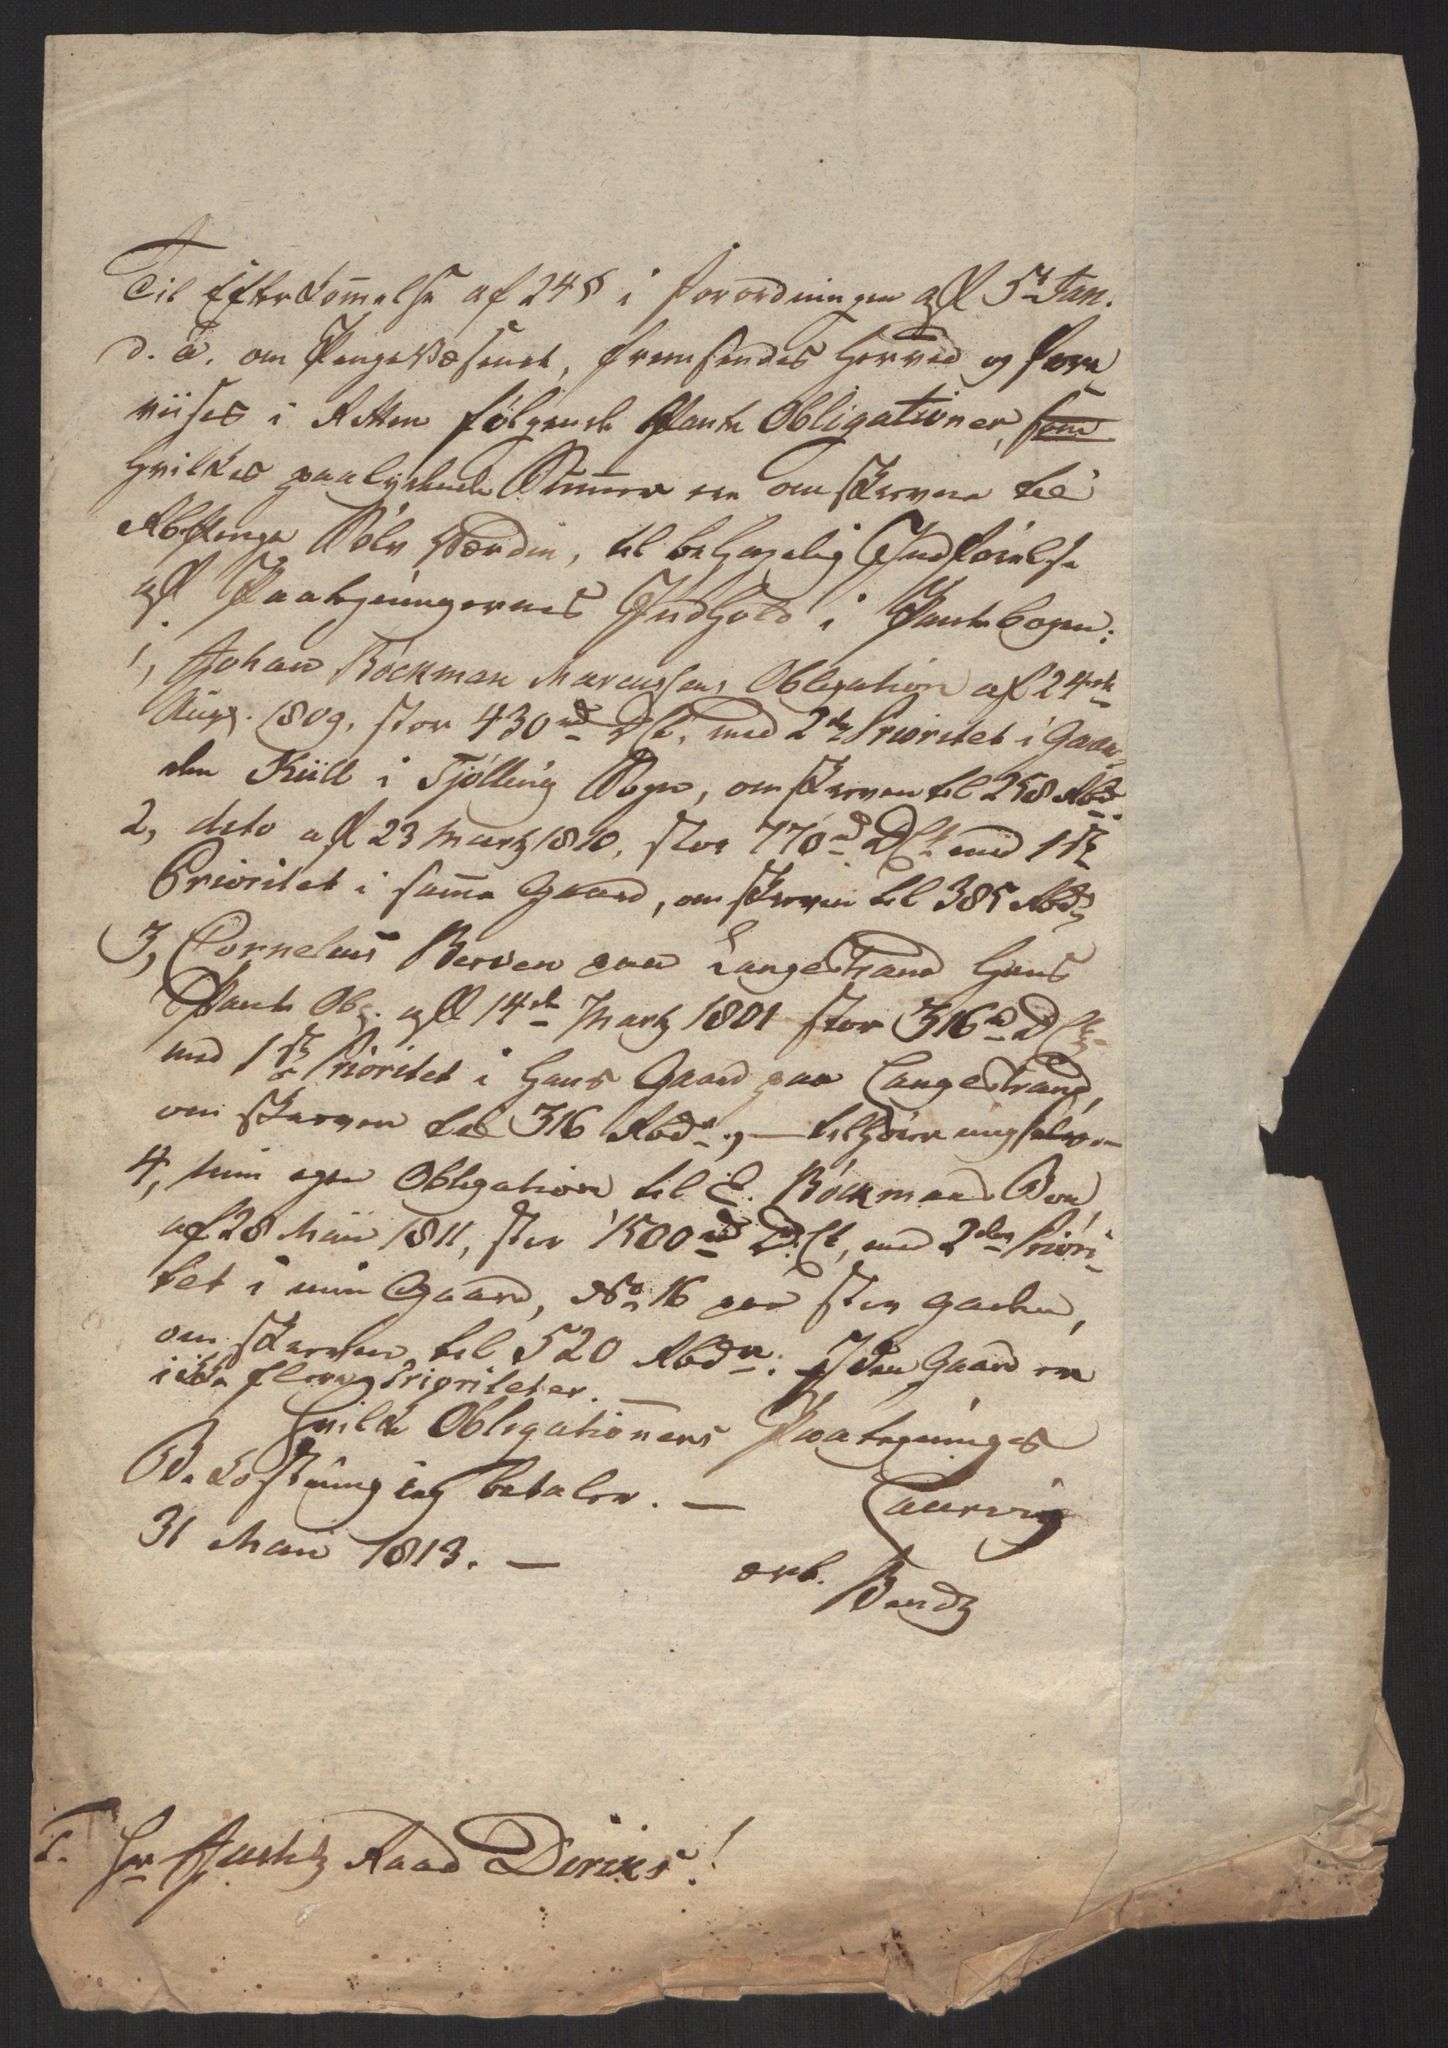 Til Efterkom̄else af 24 § i Forordningen af 5te Jan.
d. A. om PengeVæsenet, fremsendes herved og fore¬
viises i Retten følgende Pante Obligationer, som
hvilkes paalydende Summer ere omskrevne til
RbPenge Sølv Værdie, til behagelig Indførelse
af Paategningernes Indhold i Pantebogen:
1, Johan Böckman Marcussens Obligation af 24de
Aug. 1809, stor 430 rd DCt, med 2den Prioritet i Gaar¬
den Kiil i Tjølling Sogn, omskreven til 258 Rbd.
2, dito af 23 Martz 1810, stor 770 rd DCt med 1ste
Prioritet i sam̄e Gaard, omskreven til 385 Rbd,
3, Cornelius Berven paa Langestrand hans
Pante Obl. af 14de Martz 1801 stor 316 rd DCt
med 1ste Prioritet i hans Gaard paa Langestrand,
omskreven til 316 Rbdr, — tilhører mig selv —
4, min egen Obligation til E. Böckmans Boe,
af 28 Mai 1811, stor 1500 rd DCt, med 2den Priori¬
tet i min Gaard, No 16 paa Storgaden,
omskreven til 520 Rbdr. I den Gaard ere
ikke flere Prioriteter. —
Hvilke Obligationers Paategnings
Bekostning jeg betaler. — Laurvig
31 Mai 1813. —
ærb. Bendz
T. Hr Justitz Raad Diriks!